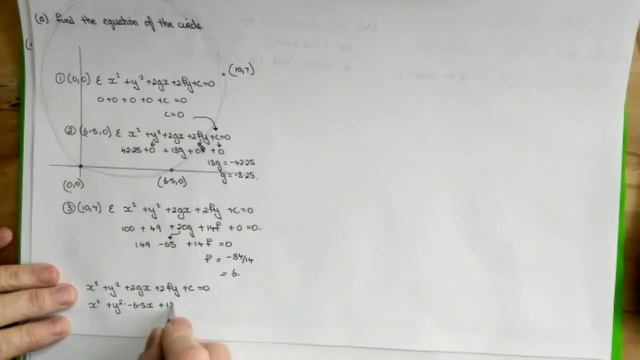 (a) Find the equation of the circle.
(10,7)
① (0,0) ε x² + y² + 2gx + 2fy + c = 0
0 + 0 + 0 + 0 + c = 0
c = 0
② (6.5,0) ε x² + y² + 2gx + 2fy + c = 0
42.25 + 0 + 13g + 0f + 0
13g = -42.25
g = -3.25.
(0,0)
(6.5,0)
③ (10,7) ε x² + y² + 2gx + 2fy + c = 0
100 + 49 + 20g + 14f + 0 = 0.
149 - 65 + 14f = 0
f = -84/14
= 6.
x² + y² + 2gx + 2fy + c = 0
x² + y² - 6.5x + 12